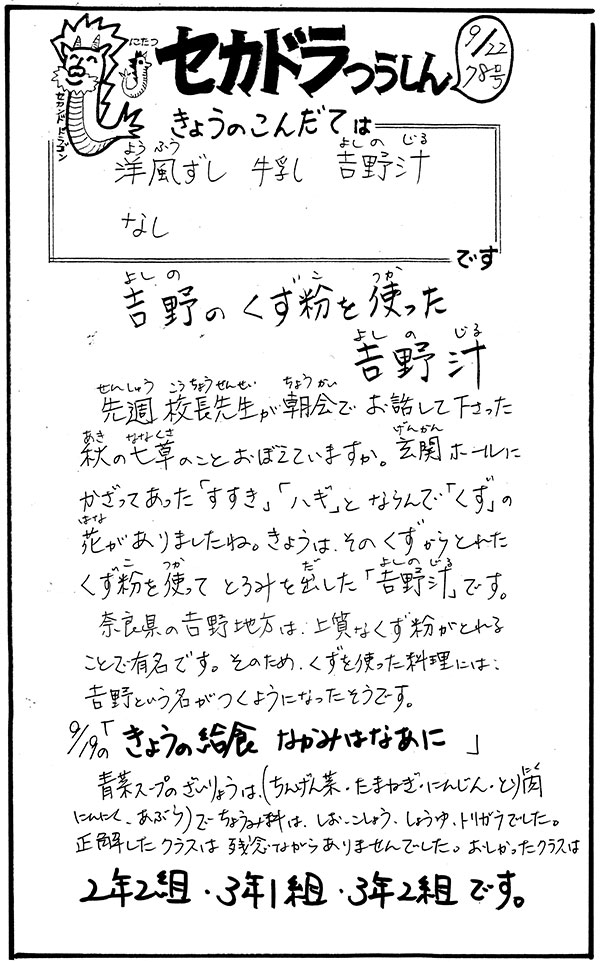 にたつ
セカンドドラゴン
セカドラつうしん
9/22
78号
きょうのこんだては
ようふう よしの じる
洋風ずし 牛乳 吉野汁
なし
です
よしの こ つか
吉野のくず粉を使った
よしの じる
吉野汁
せんしゅう こうちょうせんせい ちょうかい
先週 校長先生が朝会で お話して下さった
あき ななくさ げんかん
秋の七草のことおぼえていますか。玄関ホールに
かざってあった「すすき」「ハギ」と ならんで「くず」の
はな
花がありましたね。きょうは、そのくずからとれた
こ つか だ よしの じる
くず粉を使って とろみを出した「吉野汁」です。
奈良県の吉野地方は、上質なくず粉がとれる
ことで有名です。そのため、くずを使った料理には、
吉野という名がつくようになったそうです。
9/19の「きょうの給食 なかみはなあに」
青菜スープのざいりょうは、(ちんげん菜・たまねぎ・にんじん・とり肉
にく
にんにく、あぶら)で ちょうみ料は、しお、こしょう、しょうゆ、トリガラでした。
正解したクラスは 残念ながらありませんでした。おしかったクラスは
2年2組・3年1組・3年2組です。